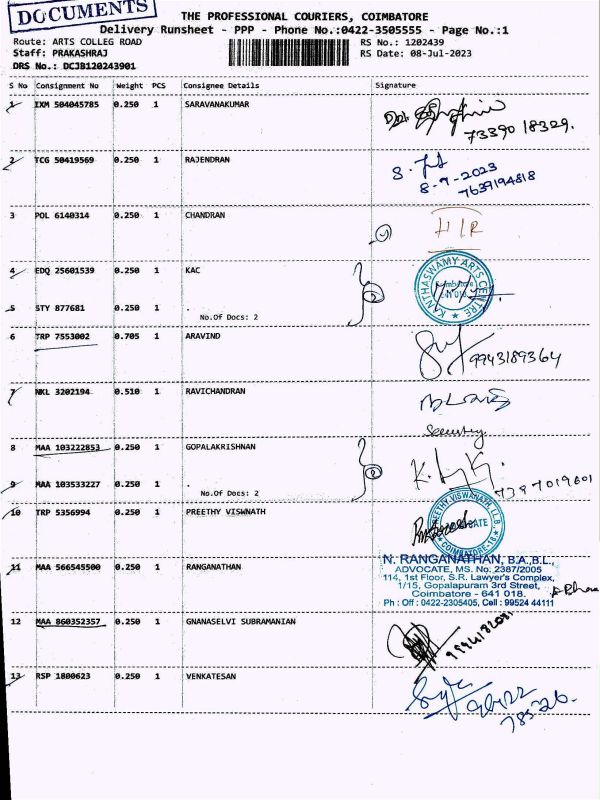 DOCUMENTS
THE PROFESSIONAL COURIERS, COIMBATORE
Delivery Runsheet - PPP - Phone No.:0422-3505555 - Page No.:1
Route: ARTS COLLEG ROAD
RS No.: 1202439
Staff: PRAKASHRAJ
RS Date: 08-Jul-2023
DRS No.: DCJB120243901
S No Consignment No Weight PCS Consignee Details Signature
1 IXM 504045785 0.250 1 SARAVANAKUMAR
73390 18329.
2 TCG 50419569 0.250 1 RAJENDRAN
8-7-2023
7639194818
3 POL 6140314 0.250 1 CHANDRAN
4 EDQ 25601539 0.250 1 KAC
KANTHASWAMY ARTS CENTRE
5 STY 877681 0.250 1 .
No.Of Docs: 2
2
6 TRP 7553002 0.705 1 ARAVIND
9943189364
7 NKL 3202194 0.510 1 RAVICHANDRAN
Security
8 MAA 103222853 0.250 1 GOPALAKRISHNAN
9 MAA 103533227 0.250 1 .
No.Of Docs: 2
2
7397019601
10 TRP 5356994 0.250 1 PREETHY VISWNATH
PREETHY VISWANATH, LL.B.
COIMBATORE-18
11 MAA 566545500 0.250 1 RANGANATHAN
N. RANGANATHAN, B.A.,B.L.,
ADVOCATE, MS. No. 2387/2005
114, 1st Floor, S.R. Lawyer's Complex,
1/15, Gopalapuram 3rd Street,
Coimbatore - 641 018.
Ph : Off : 0422-2305405, Cell : 99524 44111
12 MAA 860352357 0.250 1 GNANASELVI SUBRAMANIAN
13 RSP 1800623 0.250 1 VENKATESAN